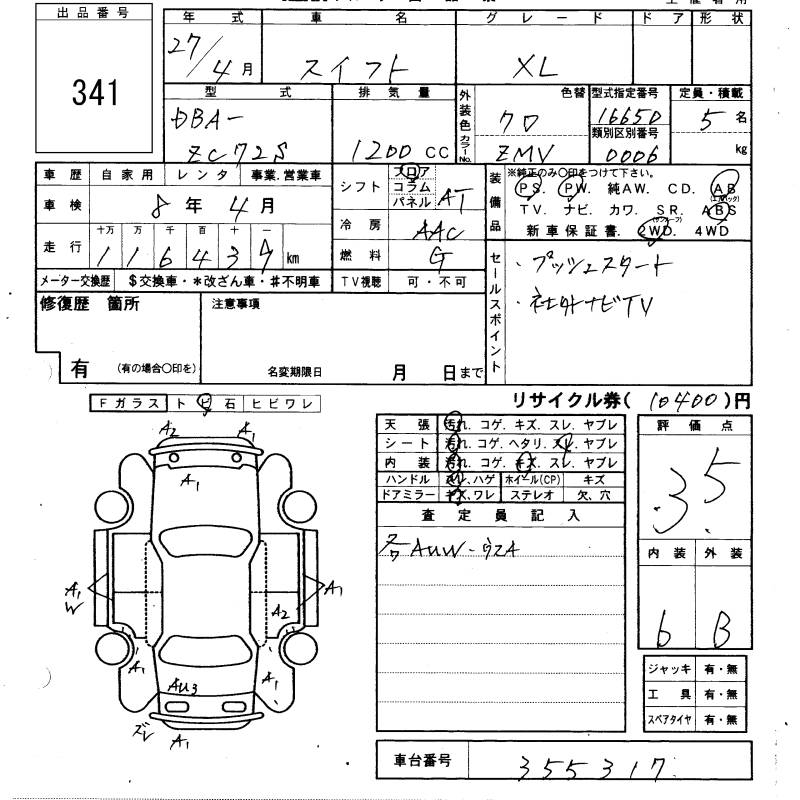 出品番号
341
年式 車名 グレード ドア 形状
27/4月 スイフト XL
型式 排気量 外装色 カラーNo. 色替 型式指定番号 定員・積載
DBA- クロ 16650 5名
類別区別番号
ZC72S 1200CC ZMV 0006 kg
車歴 自家用 レンタ 事業.営業車
車検 8年4月
走行 十万 万 千 百 十 一
116439km
メーター交換歴 $交換車・*改ざん車・#不明車
シフト フロア コラム パネル AT
冷房 AAC
燃料 G
TV視聴 可・不可
装備品 ※純正のみ○印をつけて下さい。
PS. PW. 純AW. CD. AB(エアバック)
TV. ナビ. カワ. SR.(サンルーフ) ABS
新車保証書. 2WD. 4WD
セールスポイント
・プッシュスタート
・社外ナビTV
修復歴 箇所
有 (有の場合○印を)
注意事項
名変期限日 月 日まで
リサイクル券(10400)円
Fガラス トビ石 ヒビワレ
A2 A1
A1
A1 W
A1
A2
A1 A1
AU3
ズレ A1
天張 汚れ. コゲ. キズ. スレ. ヤブレ
シート 汚れ. コゲ. ヘタリ. スレ. ヤブレ
内装 汚れ. コゲ. キズ. スレ. ヤブレ
ハンドル スレ. ハゲ ホイール(CP) キズ
ドアミラー キズ. ワレ ステレオ 欠、穴
査定員記入
各AUW-ウスA
評価点
3.5
内装 外装
6 B
ジャッキ 有・無
工具 有・無
スペアタイヤ 有・無
車台番号 355317